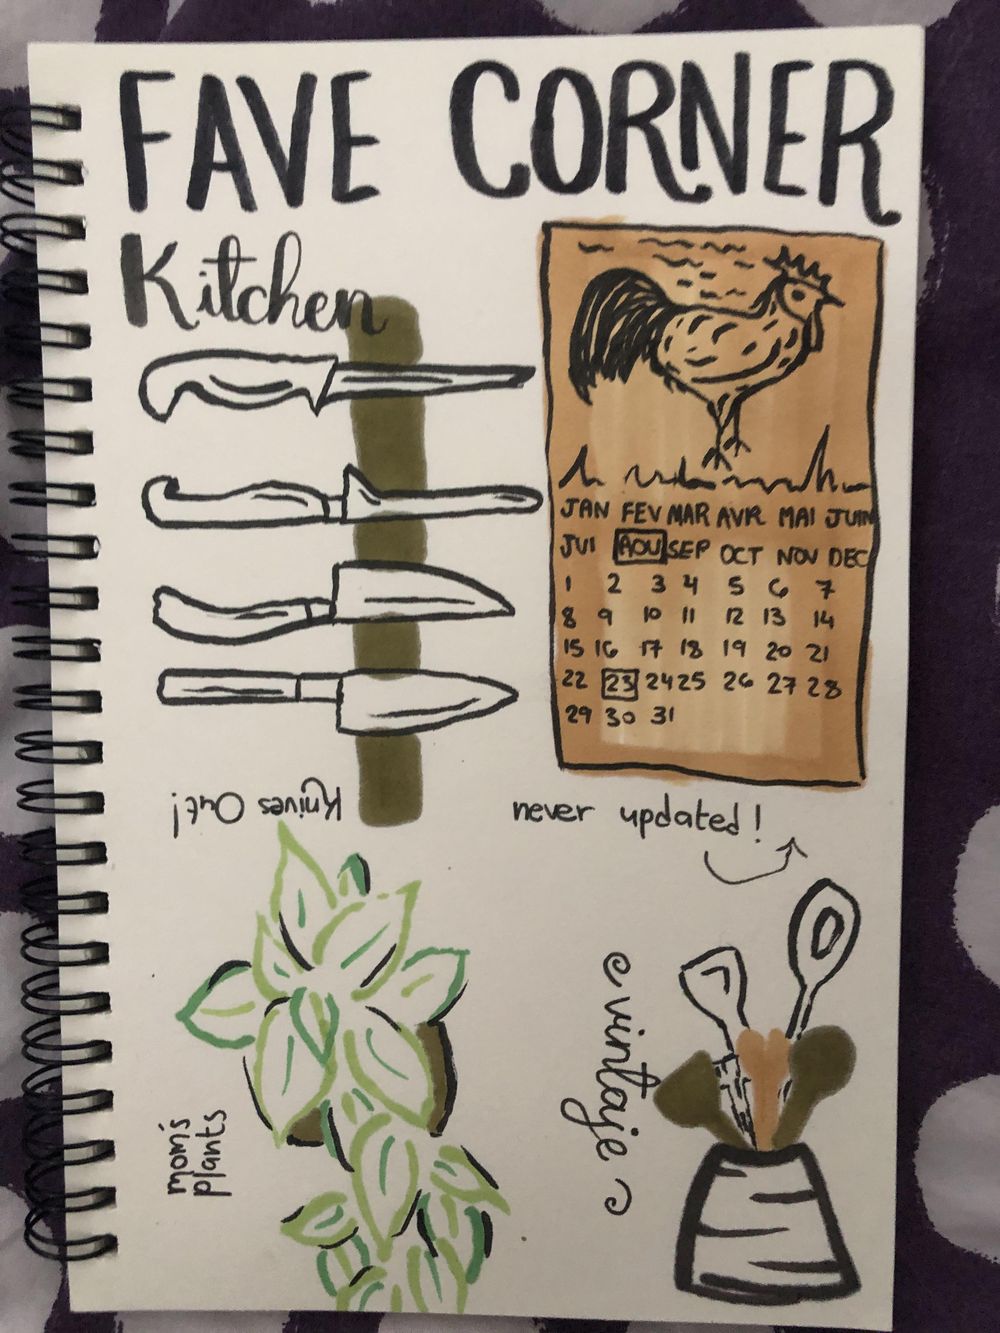 FAVE CORNER
Kitchen
JAN FEV MAR AVR MAI JUIN
JUI AOU SEP OCT NOV DEC
1 2 3 4 5 6 7
8 9 10 11 12 13 14
15 16 17 18 19 20 21
22 23 24 25 26 27 28
29 30 31
Knives Out!
never updated!
vintage
mom's
plants